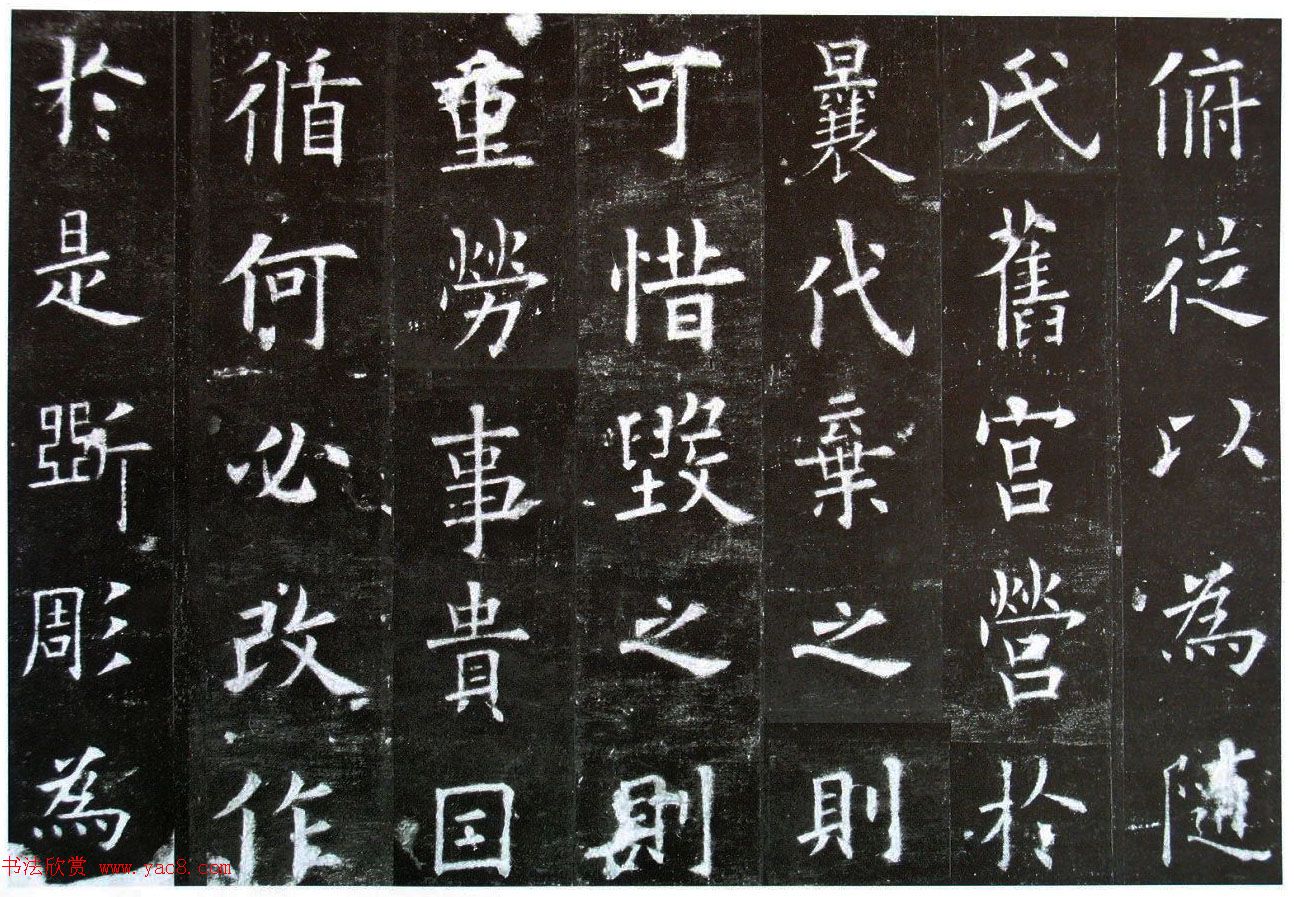 俯從以為隨
氏舊宮營於
曩代棄之則
可惜毀之則
重勞事貴因
循何必改作
於是斲彫為
书法欣赏 www.yac8.com